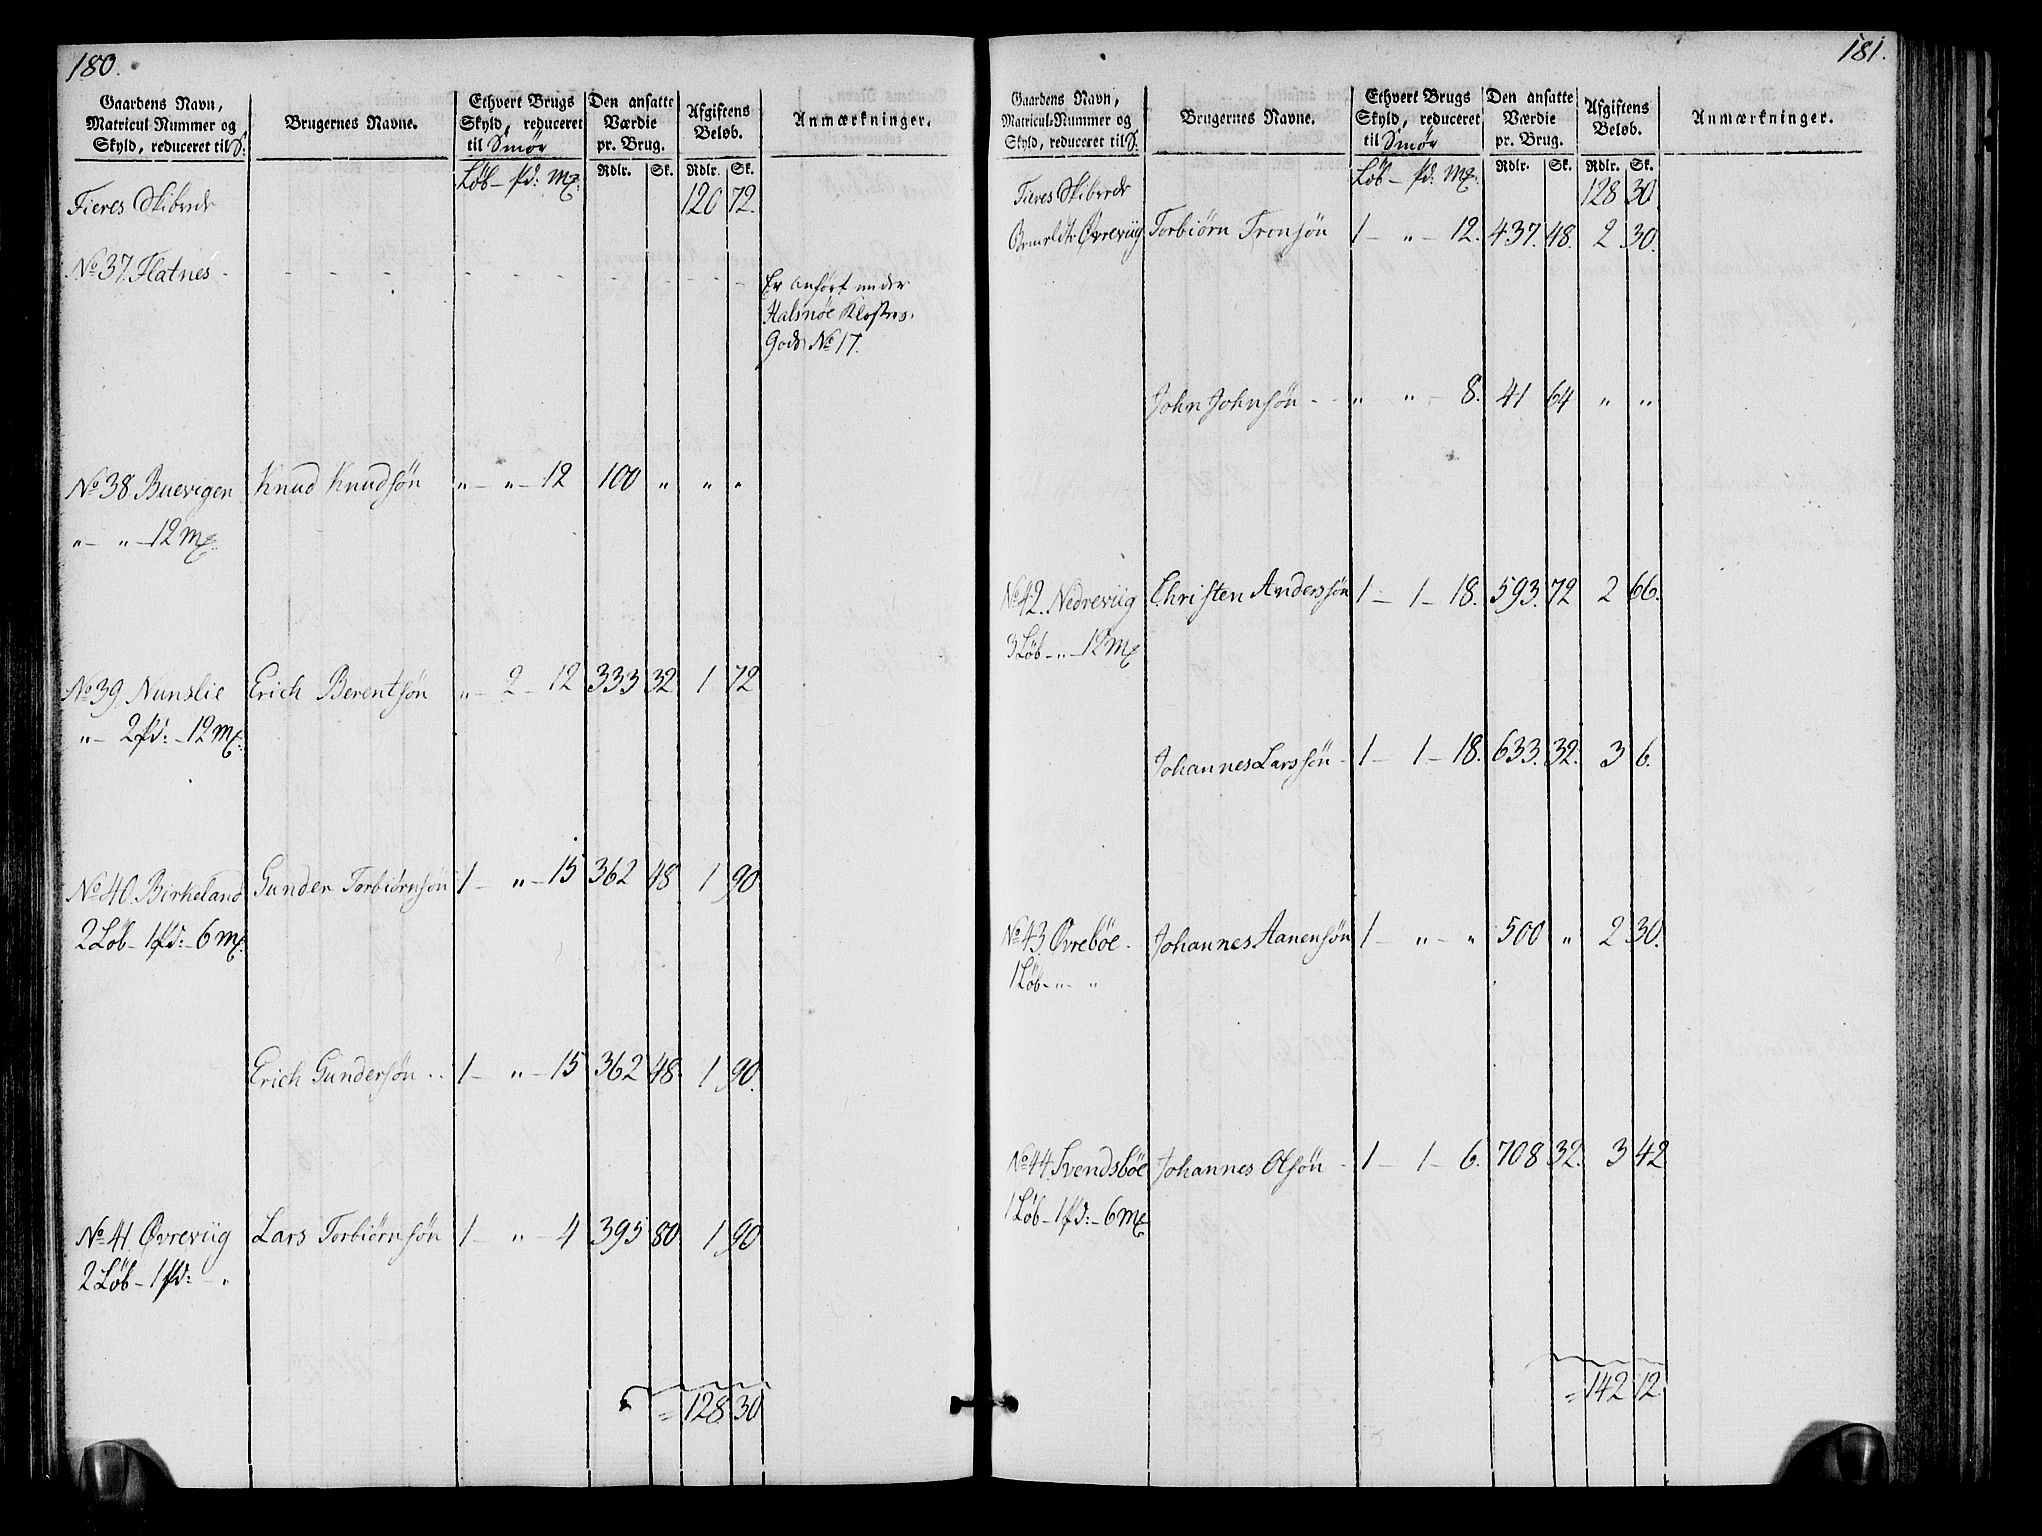 180.
Gaardens Navn, Matricul Nummer og Skyld, reduceret til S. | Brugernes Navne. | Ethvert Brugs Skyld, reduceret til Smör | Den ansatte Værdie pr. Brug. | Afgiftens Beløb. | Anmærkninger.
Löb – pd: mk. | Rdlr. | Sk. | Rdlr. | Sk.
Fieres Skibrede 120 72.
No 37. Flatnes - - - - - - - - - - - Er anført under
Halsnöe Klosters
Gods No 17.
No 38 Buevigen Knud Knudsøn „ – „ – 12 100 „ „ „
„ – „ – 12 mk.
No 39. Nunslie Erich Berentsøn „ – 2 – 12 333 32 1 72
„ – 2 pd: – 12 mk:
No 40. Birkeland Gunder Torbiørnsøn 1 – „ – 15 362 48 1 90
2 Löb – 1 pd: – 6 mk.
Erich Gundersøn . . 1 – „ – 15 362 48. 1 90.
No 41 Øvreviig Lars Torbiørnsøn 1 – „ – 4 395 80 1 90
2 Löb – 1 pd: – „
= 128 30
181.
Gaardens Navn, Matricul-Nummer og Skyld, reduceret til S. | Brugernes Navne. | Ethvert Brugs Skyld, reduceret til Smör | Den ansatte Værdie pr. Brug. | Afgiftens Beløb. | Anmærkninger.
Löb – pd: mk. | Rdlr. | Sk. | Rdlr. | Sk.
Fieres Skibrede 128 30
Øvreviig Torbiørn Tronsøn 1 – „ – 12. 437. 48. 2 30.
John Johnsøn - - „ „ – 8. 41 64 „ „
No 42. Nedreviig Christen Anderssøn 1 – 1 – 18. 593. 72 2 66.
3 Löb – „ – 12 mk
Johannes Larssøn - 1 – 1 – 18. 633. 32. 3 6.
No 43. Øvrebøe - Johannes Aanensøn 1 – „ – „ 500 „ 2 30.
1 Löb – „ – „
No 44. Svendsbøe Johannes Olsøn - 1 – 1 – 6. 708 32. 3 42
1 Löb – 1 pd: – 6 mk
= 142 12